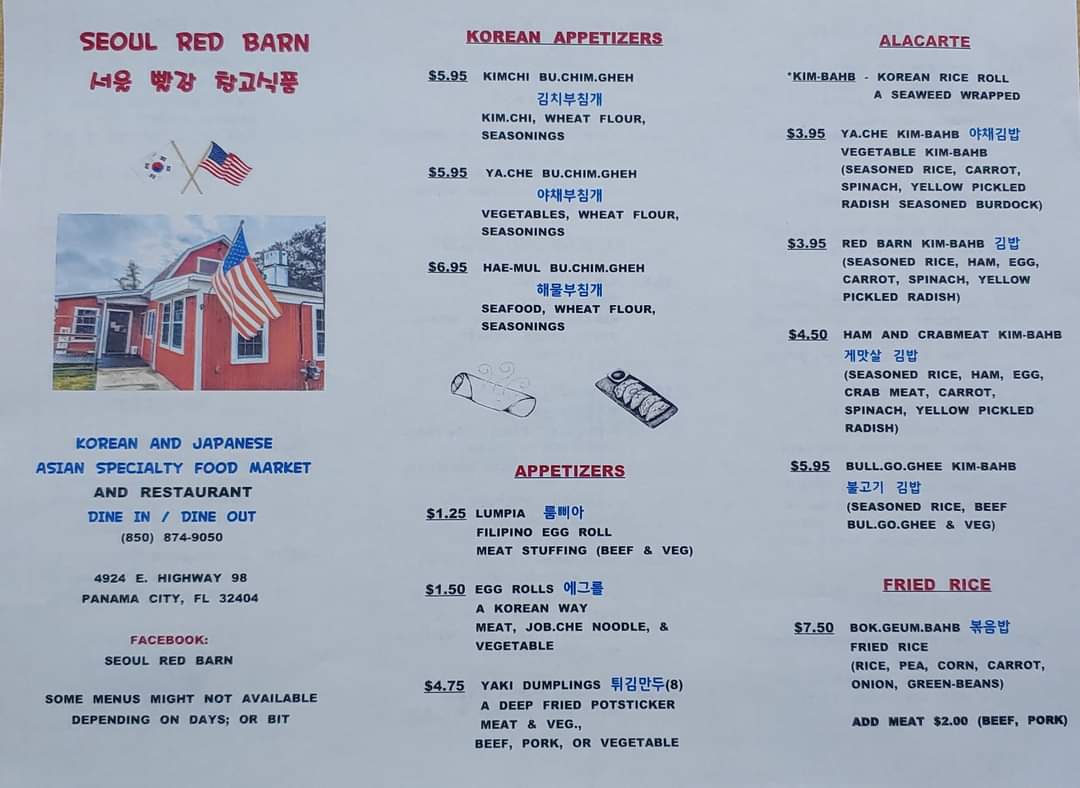 SEOUL RED BARN
서울 빨강 창고식품
KOREAN AND JAPANESE
ASIAN SPECIALTY FOOD MARKET
AND RESTAURANT
DINE IN / DINE OUT
(850) 874-9050
4924 E. HIGHWAY 98
PANAMA CITY, FL 32404
FACEBOOK:
SEOUL RED BARN
SOME MENUS MIGHT NOT AVAILABLE
DEPENDING ON DAYS; OR BIT
KOREAN APPETIZERS
$5.95 KIMCHI BU.CHIM.GHEH
김치부침개
KIM.CHI, WHEAT FLOUR,
SEASONINGS
$5.95 YA.CHE BU.CHIM.GHEH
야채부침개
VEGETABLES, WHEAT FLOUR,
SEASONINGS
$6.95 HAE-MUL BU.CHIM.GHEH
해물부침개
SEAFOOD, WHEAT FLOUR,
SEASONINGS
APPETIZERS
$1.25 LUMPIA 룸삐아
FILIPINO EGG ROLL
MEAT STUFFING (BEEF & VEG)
$1.50 EGG ROLLS 에그롤
A KOREAN WAY
MEAT, JOB.CHE NOODLE, &
VEGETABLE
$4.75 YAKI DUMPLINGS 튀김만두(8)
A DEEP FRIED POTSTICKER
MEAT & VEG.,
BEEF, PORK, OR VEGETABLE
ALACARTE
*KIM-BAHB - KOREAN RICE ROLL
A SEAWEED WRAPPED
$3.95 YA.CHE KIM-BAHB 야채김밥
VEGETABLE KIM-BAHB
(SEASONED RICE, CARROT,
SPINACH, YELLOW PICKLED
RADISH SEASONED BURDOCK)
$3.95 RED BARN KIM-BAHB 김밥
(SEASONED RICE, HAM, EGG,
CARROT, SPINACH, YELLOW
PICKLED RADISH)
$4.50 HAM AND CRABMEAT KIM-BAHB
게맛살 김밥
(SEASONED RICE, HAM, EGG,
CRAB MEAT, CARROT,
SPINACH, YELLOW PICKLED
RADISH)
$5.95 BULL.GO.GHEE KIM-BAHB
불고기 김밥
(SEASONED RICE, BEEF
BUL.GO.GHEE & VEG)
FRIED RICE
$7.50 BOK.GEUM.BAHB 볶음밥
FRIED RICE
(RICE, PEA, CORN, CARROT,
ONION, GREEN-BEANS)
ADD MEAT $2.00 (BEEF, PORK)